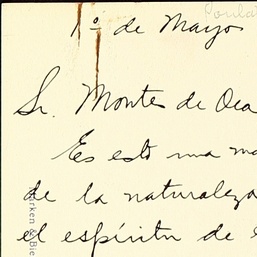 1º de Mayo
Sr. Montes de Oca
Es esto una
de la naturaleza
el espíritu de